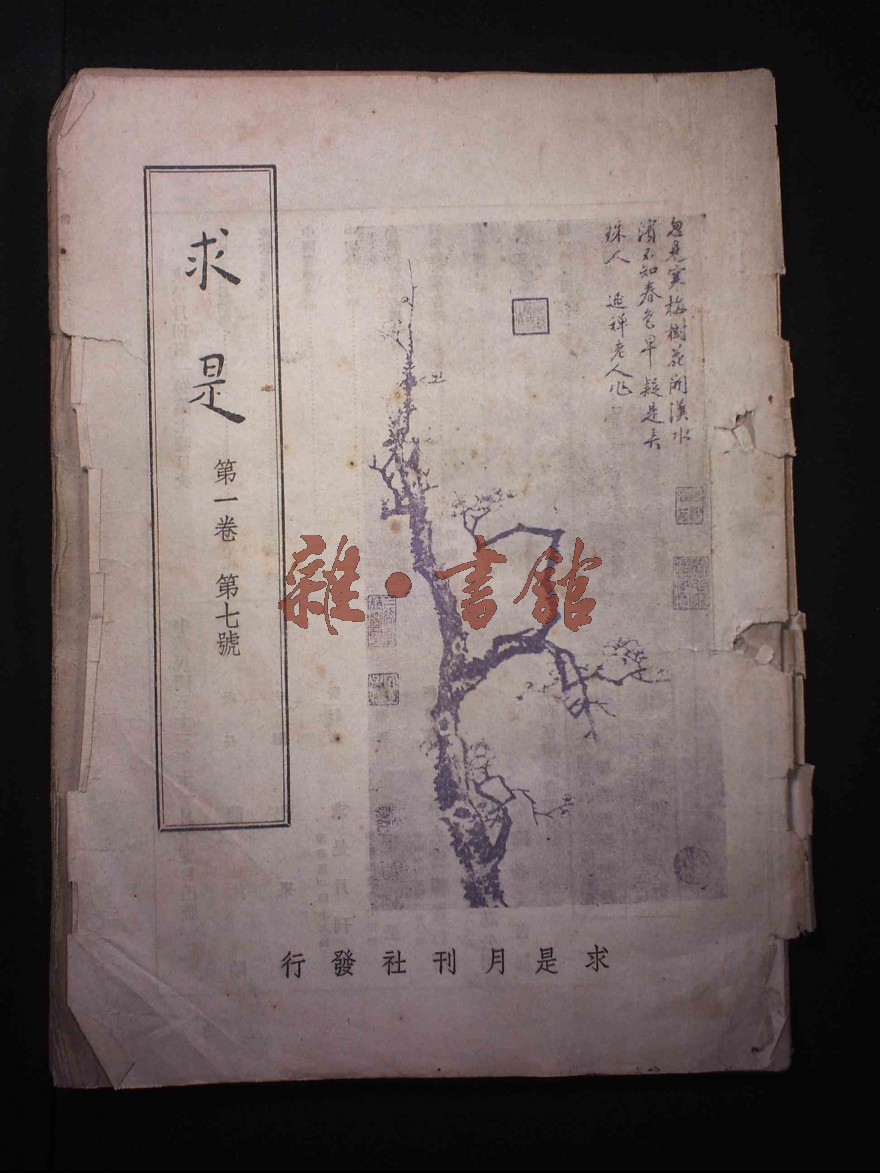 求是
第一卷 第七號
忽見寒梅樹花開漢水
濱不知春色早疑是弄
珠人 逃禪老人作
雜·書館
求是月刊社發行